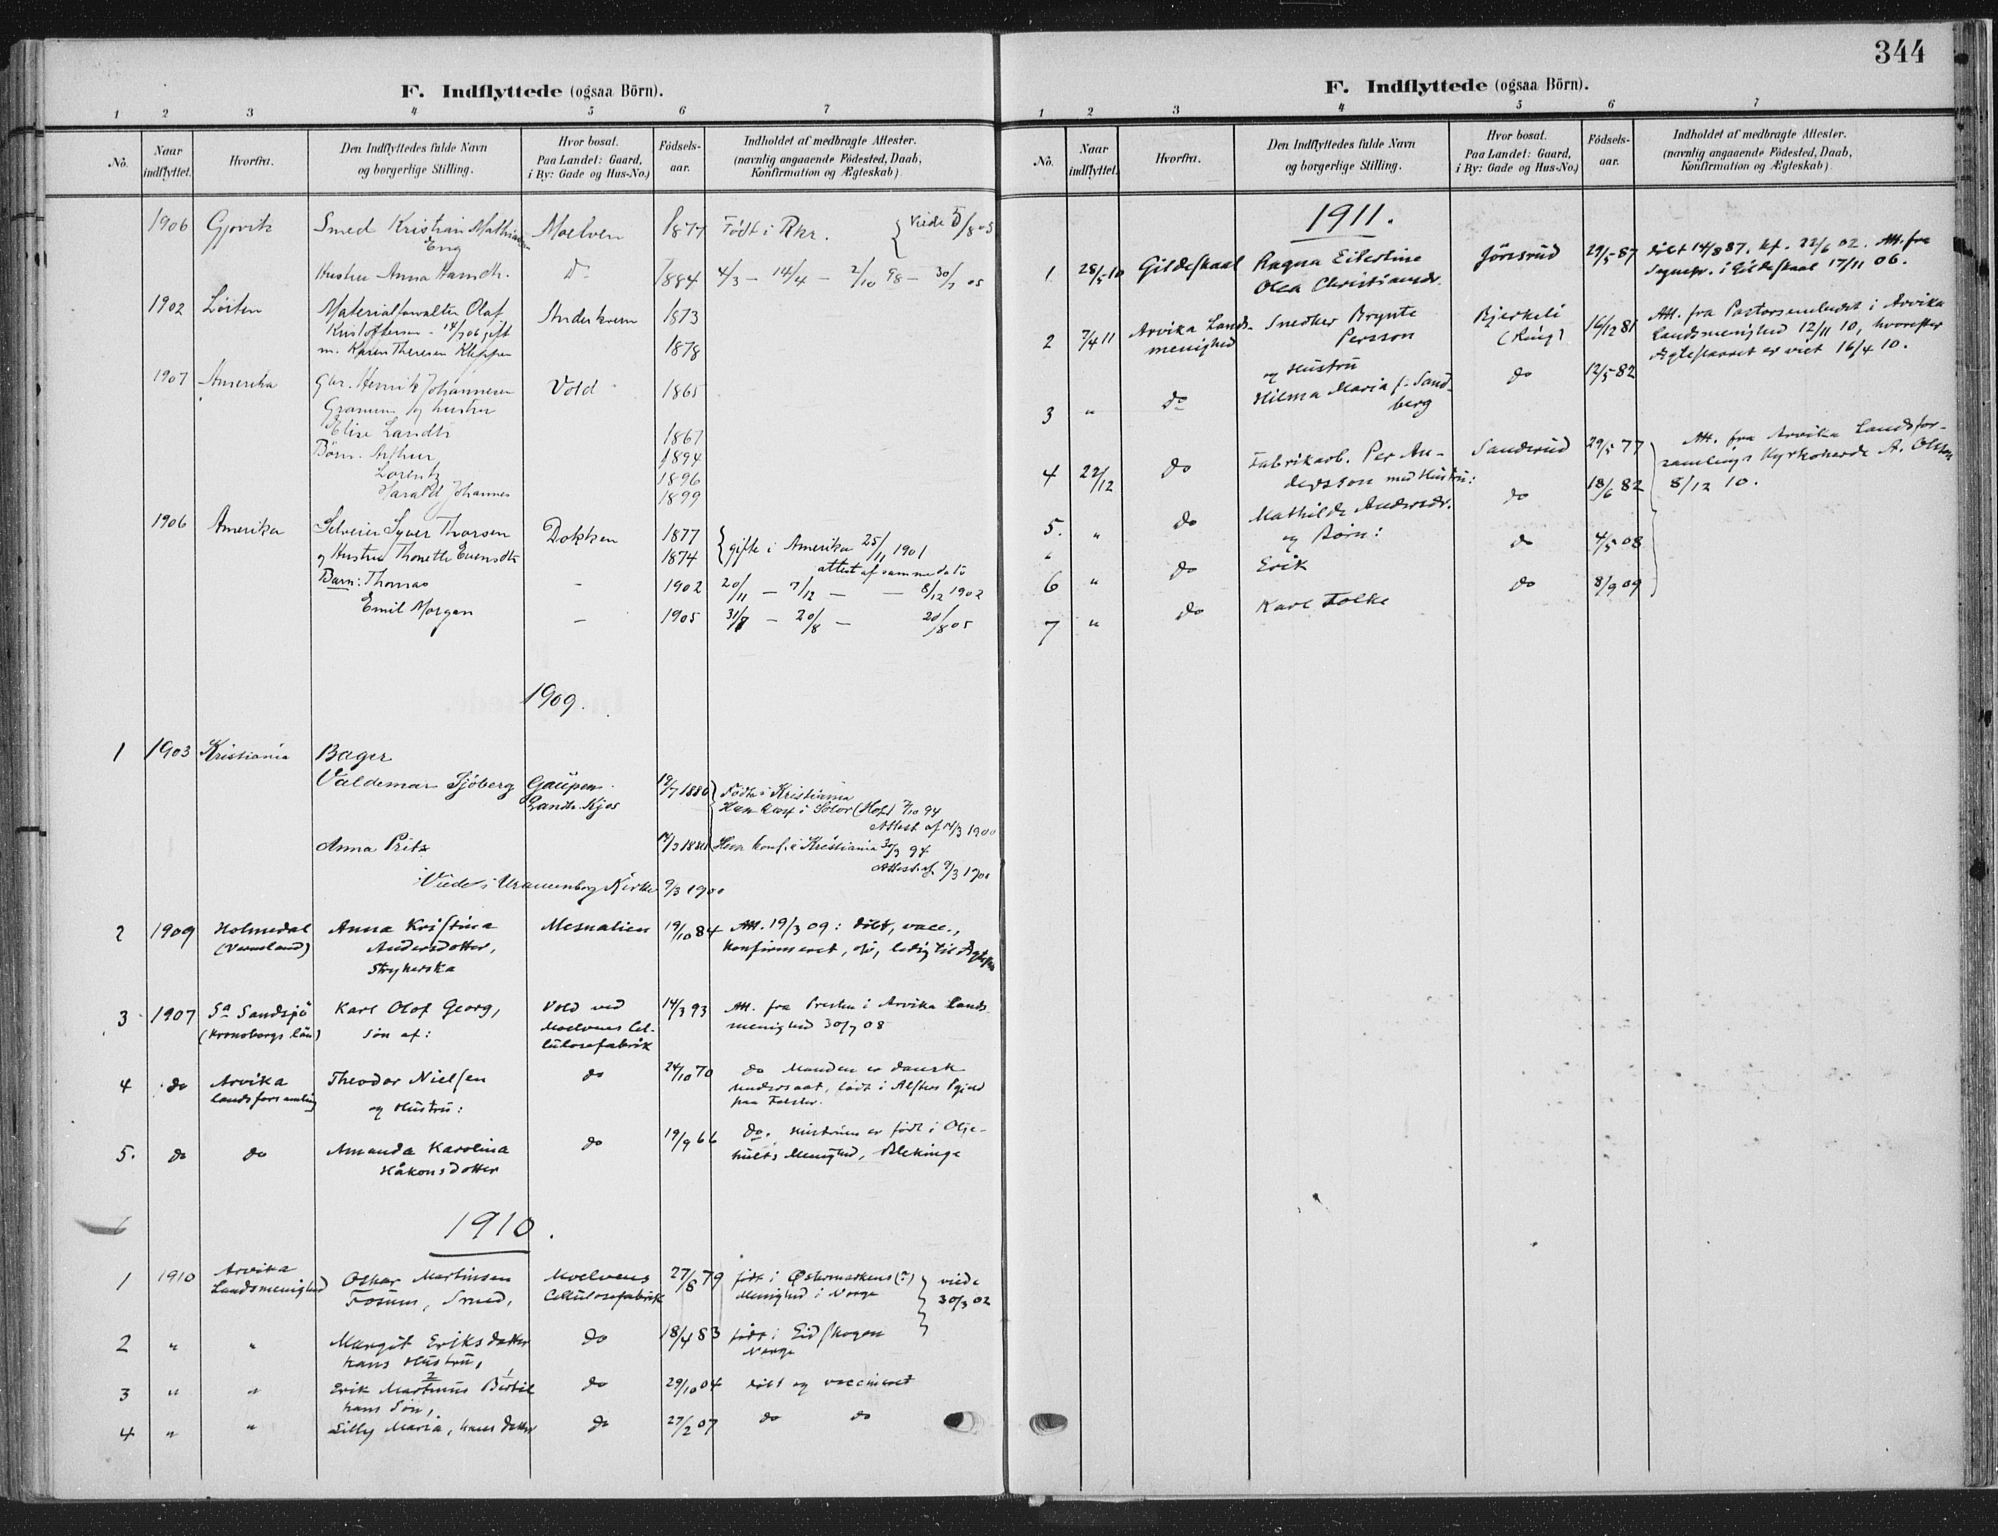 344
F. Indflyttede (ogsaa Börn).
1 2 3 4 5 6 7
No. Naar indflyttet. Hvorfra. Den Indflyttedes fulde Navn og borgerlige Stilling. Hvor bosat. Paa Landet: Gaard, i By: Gade og Hus-No.) Födsels-aar. Indholdet af medbragte Attester. (navnlig angaaende Födested, Daab, Konfirmation og Ægteskab)
1906 Gjøvik Smed Kristian Mathiasen Moelven 1877 Født i Rkr. Viede 5/8 05
Eng
Hustru Anna Hansdt. Do 1884 4/3 – 14/4 – 2/10 98 – 30/7 05
1902 Løiten Materialforvalter Olaf 1873
Kristoffersen - 14/7 06 gift
m. Karen Theresen Kleppen 1878
1907 Amerika Gbr. Henrik Johannesen Vold 1865
og hustru
Elise Larsdt. 1867
Børn. Arthur, 1894
Lorentz 1896
Harald Johannes 1899
1906 Amerika Selveier Syver Thorsen Dokken 1877 gifte i Amerika 25/11 1901
og Hustru Thonette Evensdt. 1874 attest af samme dato
Barn: Thomas – 1902 20/11 – 7/12 – – 8/12 1902
Emil Morgan – 1905 31/7 – 20/8 – 20/8 05
1909.
1 1903 Kristiania Bager
Valdemar Sjöberg Gaupen 19/7 1880 Født i Kristiania
Han konf i Solør (Hof) 7/10 94
Attest af 14/3 1900
Anna Pritz Hun konf. i Kristiania 30/9 94
Attest af 9/3 1900
Viede i Uranienborg Kirke 9/3 1900
2 1909 Holmedal Anna Kristina Mesnalien 19/10 84 Att. 19/3 09: døbt, vacc.,
(Vermland) Andersdotter, konfirmeret, ledig til Ægtesk
Strykerska
3 1907 Sa Sandsjö Karl Olof Georg, Vold ved 14/3 93 Att. fra Presten i Arvika Lands
(Kronobergs län) Søn af: Moelvens Cel- menighed 30/7 08
lulosefabrik
4 do Arvika Theodor Nielsen do 24/10 70 do Manden er dansk
landsforsamling og Hustru: undersaat, født i
paa Falster.
5. do do Amanda Karolina do 19/9 66 do. Hustruen er født i Olje-
Håkonsdotter hults Menighed, Blekinge
1910.
1 1910 Arvika Oskar Martinsen Moelvens 27/8 79 født i Østermarkens(?) viede
Landsmenighed Fosum, Smed, Cellulosefabrik Menighed i Norge 30/3 02
2 " " Margit Eriksdatter do 18/4 83 født i Eidskogen
hans Hustru, Norge
3 " " Erik Martinus Bertil do 29/10 04 døbt og vaccineret
hans Søn,
4 " " Lilly Maria, hans datter do 27/2 07 do do
F. Indflyttede (ogsaa Börn).
1 2 3 4 5 6 7
No. Naar indflyttet. Hvorfra. Den Indflyttedes fulde Navn og borgerlige Stilling. Hvor bosat. Paa Landet: Gaard, i By: Gade og Hus-No.) Födsels-aar. Indholdet af medbragte Attester. (navnlig angaaende Födested, Daab, Konfirmation og Ægteskab)
1911.
1 28/5 10 Gildeskaal Ragna Eilertine Jønsrud 29/5 87 døbt 14/8 87. kf. 22/6 02. Att. fra
Olea Christiansdr. Sognepr. i Gildeskaal 17/11 06.
2 7/4 11 Arvika Lands- Snedker Brynte Bjerkeli 16/12 81 Att. fra Pastorsembedet i Arvika
menighed Persson (Ring) Landsmenighed 12/11 10, hvorefter
Ægteparret er viet 16/4 10.
og Hustru
3 " do Hilma Maria f. Sand- do 12/5 82
berg
4 22/12 do Fabrikarb. Per An- Sanderud 29/5 77 Att. fra Arvika Landsfor-
dersson med Hustru: samlings Kyrkoherde A. Olsson
8/12 10.
5. " do Mathilde Andersdr. do 18/6 82
og Børn:
6 " do Erik do 4/5 08
7 " do Karl Folke do 8/9 09